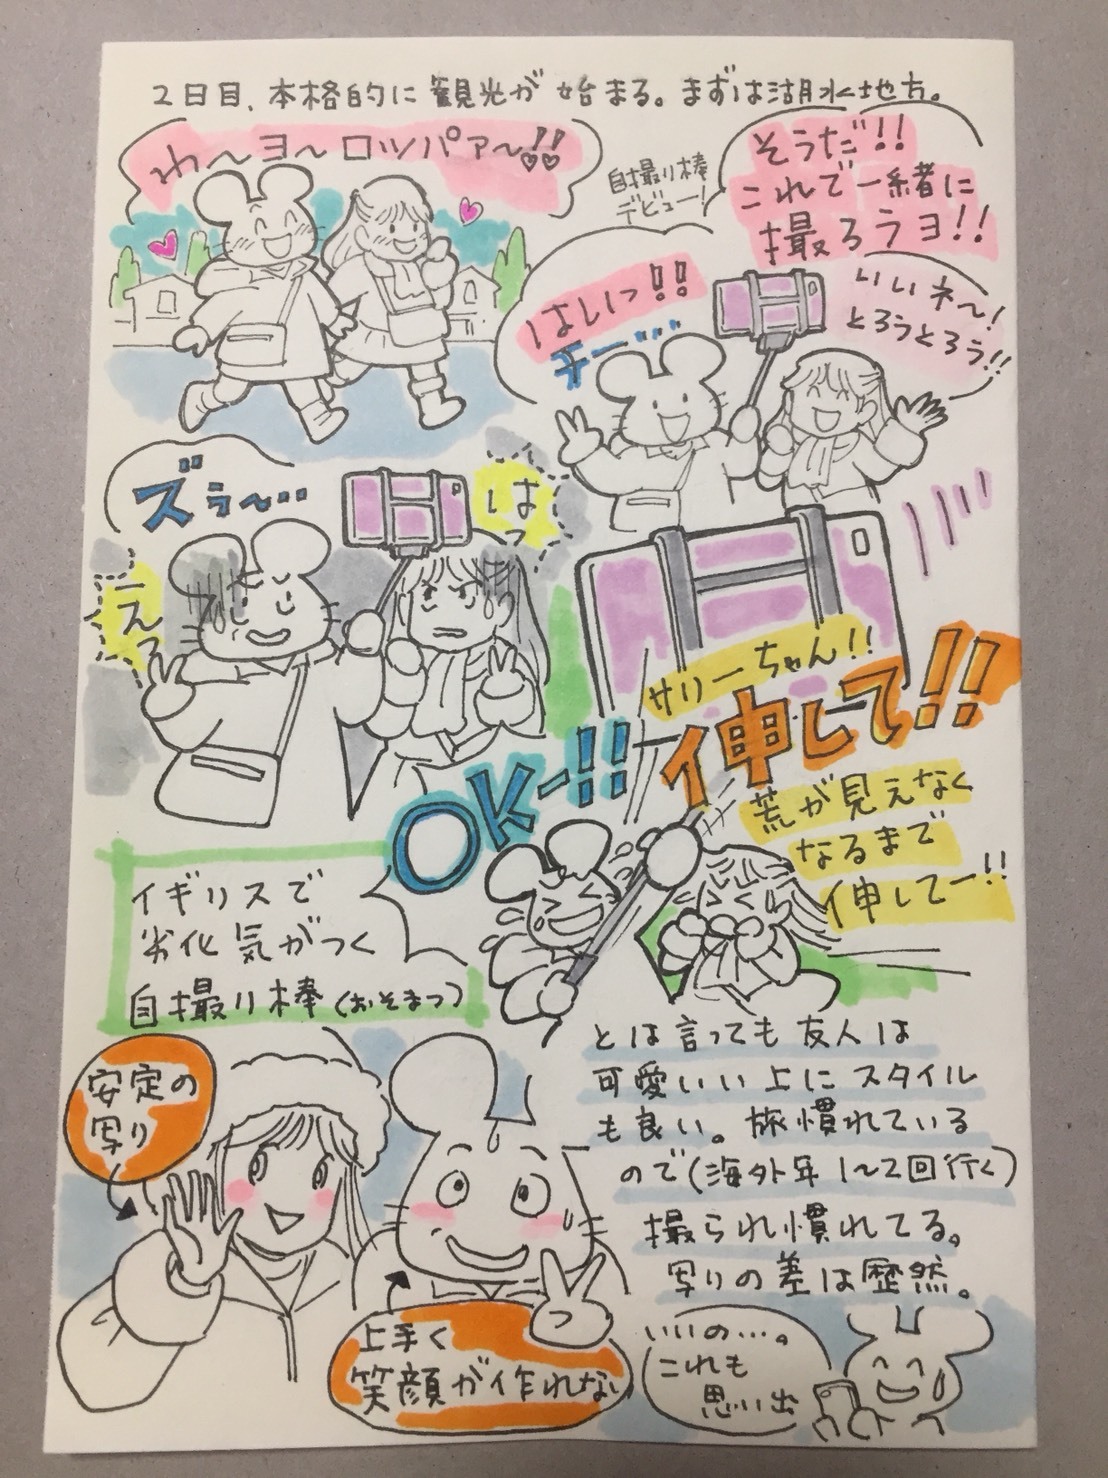 2日目、本格的に観光が始まる。まずは湖水地方。
わ〜ヨ〜ロッパァ〜!!
自撮り棒
デビュー!
そうだ!!
これで一緒に
撮ろうヨ!!
はいっ!!
チー…
いいネ〜!
とろうとろう!!
ズぅ〜…
はっ
えっ
サリーちゃん!!
伸して!!
OKー!!
荒が見えなく
なるまで
伸してー!!
イギリスで
劣化気がつく
自撮り棒(おそまつ)
とは言っても友人は
可愛いい上にスタイル
も良い。旅慣れている
ので(海外年1〜2回行く)
撮られ慣れてる。
写りの差は歴然。
安定の
写り
上手く
笑顔が作れない
いいの…。
これも
思い出